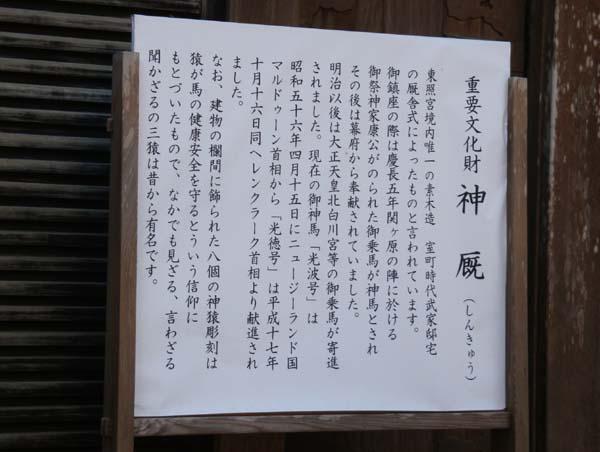 重要文化財 神厩（しんきゅう）
東照宮境内唯一の素木造 室町時代武家邸宅
の厩舎式によったものと言われています。
御鎮座の際は慶長五年関ヶ原の陣に於ける
御祭神家康公がのられた御乗馬が神馬とされ
その後は幕府から奉献されていました。
明治以後は大正天皇北白川宮等の御乗馬が寄進
されました。現在の御神馬「光波号」は
昭和五十六年四月十五日にニュージーランド国
マルドゥーン首相から「光徳号」は平成十七年
十月十六日同ヘレンクラーク首相より献進され
ました。
なお、建物の欄間に飾られた八個の神猿彫刻は
猿が馬の健康安全を守るとういう信仰に
もとづいたもので、なかでも見ざる、言わざる
聞かざるの三猿は昔から有名です。